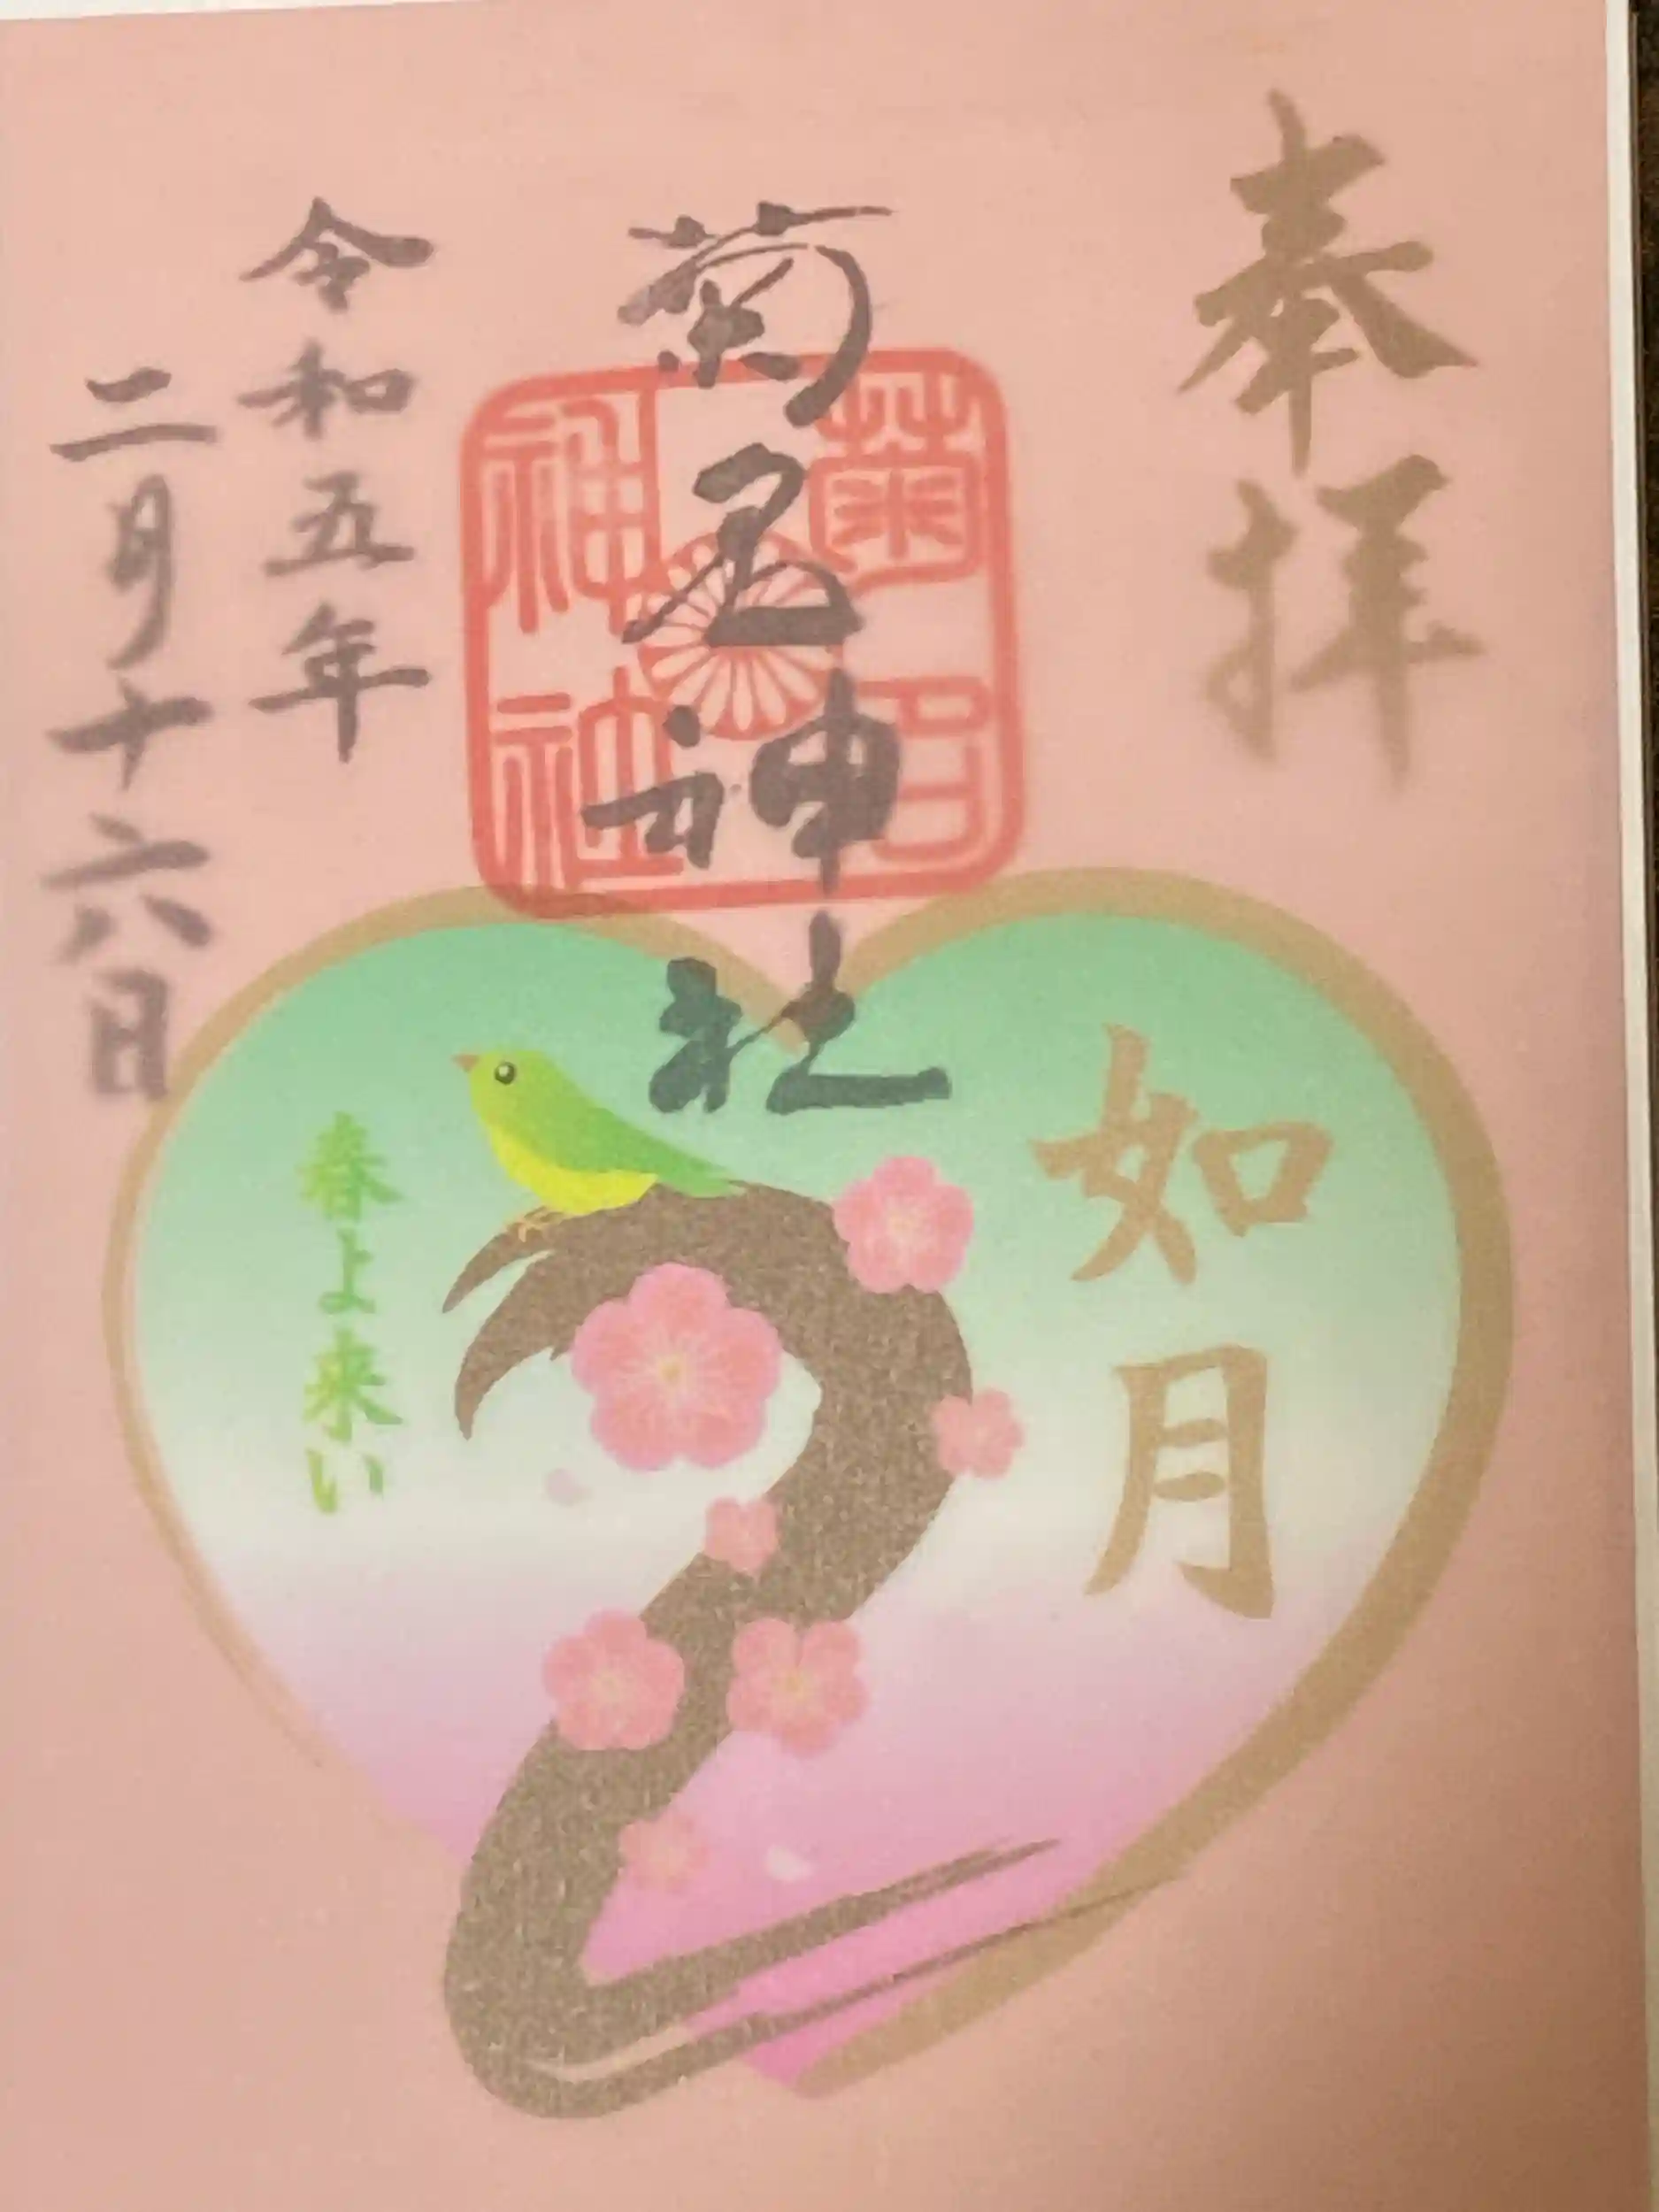 奉拝
如月
菊名神社
菊名
神社
令和五年
二月十六日
春よ来い